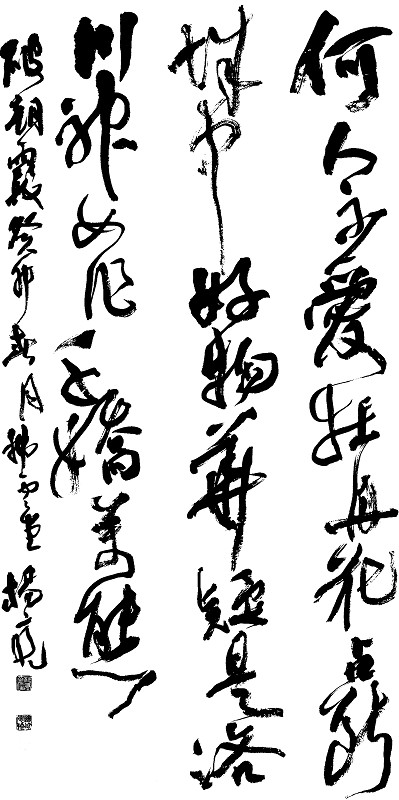 何人不愛牡丹花占斷
城中好物華疑是洛
川神女作千嬌萬態
破朝霞癸卯春月楊